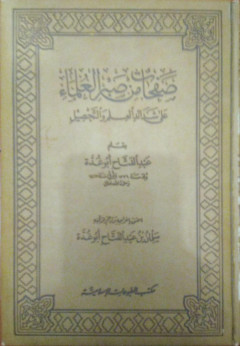 صفحات من صبر العلماء
على شدائد العلم والتحصيل
بقلم
عبد الفتاح أبو غدة
سلمان بن عبد الفتاح أبو غدة
مكتب المطبوعات الإسلامية